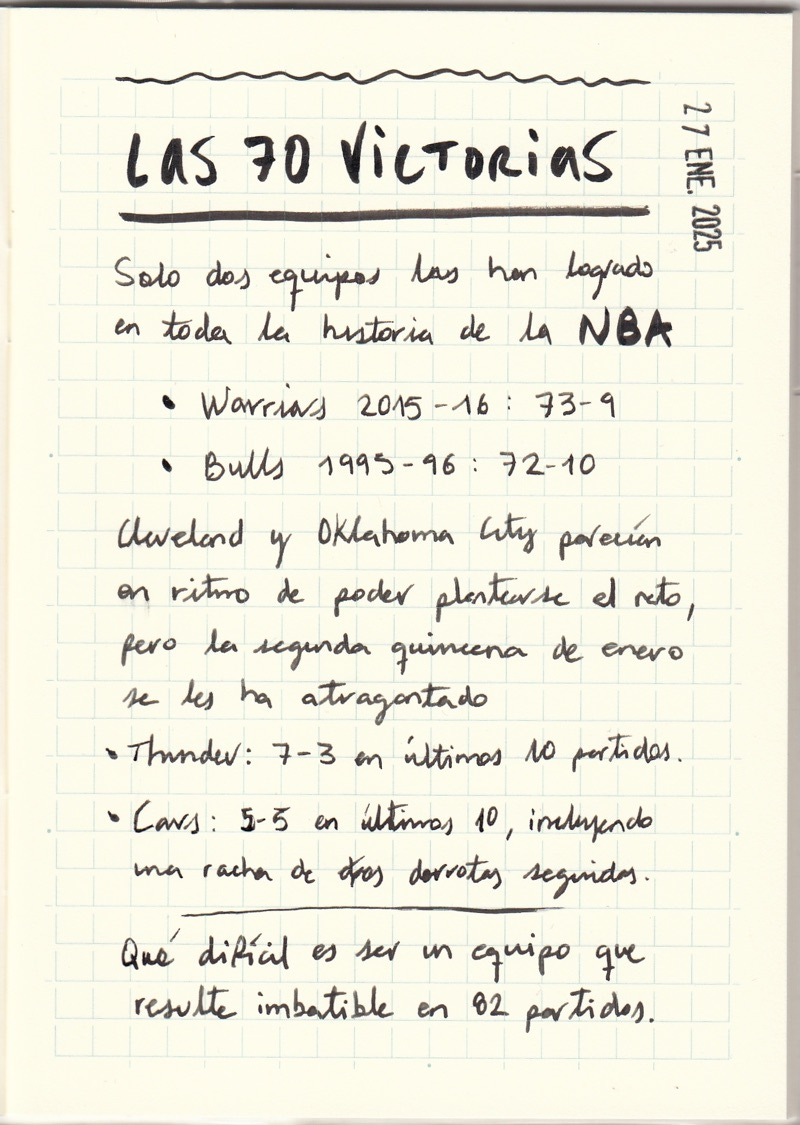 27 ENE. 2025
LAS 70 VICTORIAS
Solo dos equipos las han logrado
en toda la historia de la NBA
• Warriors 2015-16: 73-9
• Bulls 1995-96: 72-10
Cleveland y Oklahoma City parecían
en ritmo de poder plantearse el reto,
pero la segunda quincena de enero
se les ha atragantado
• Thunder: 7-3 en últimos 10 partidos.
• Cavs: 5-5 en últimos 10, incluyendo
una racha de derrotas seguidas.
Qué difícil es ser un equipo que
resulte imbatible en 82 partidos.